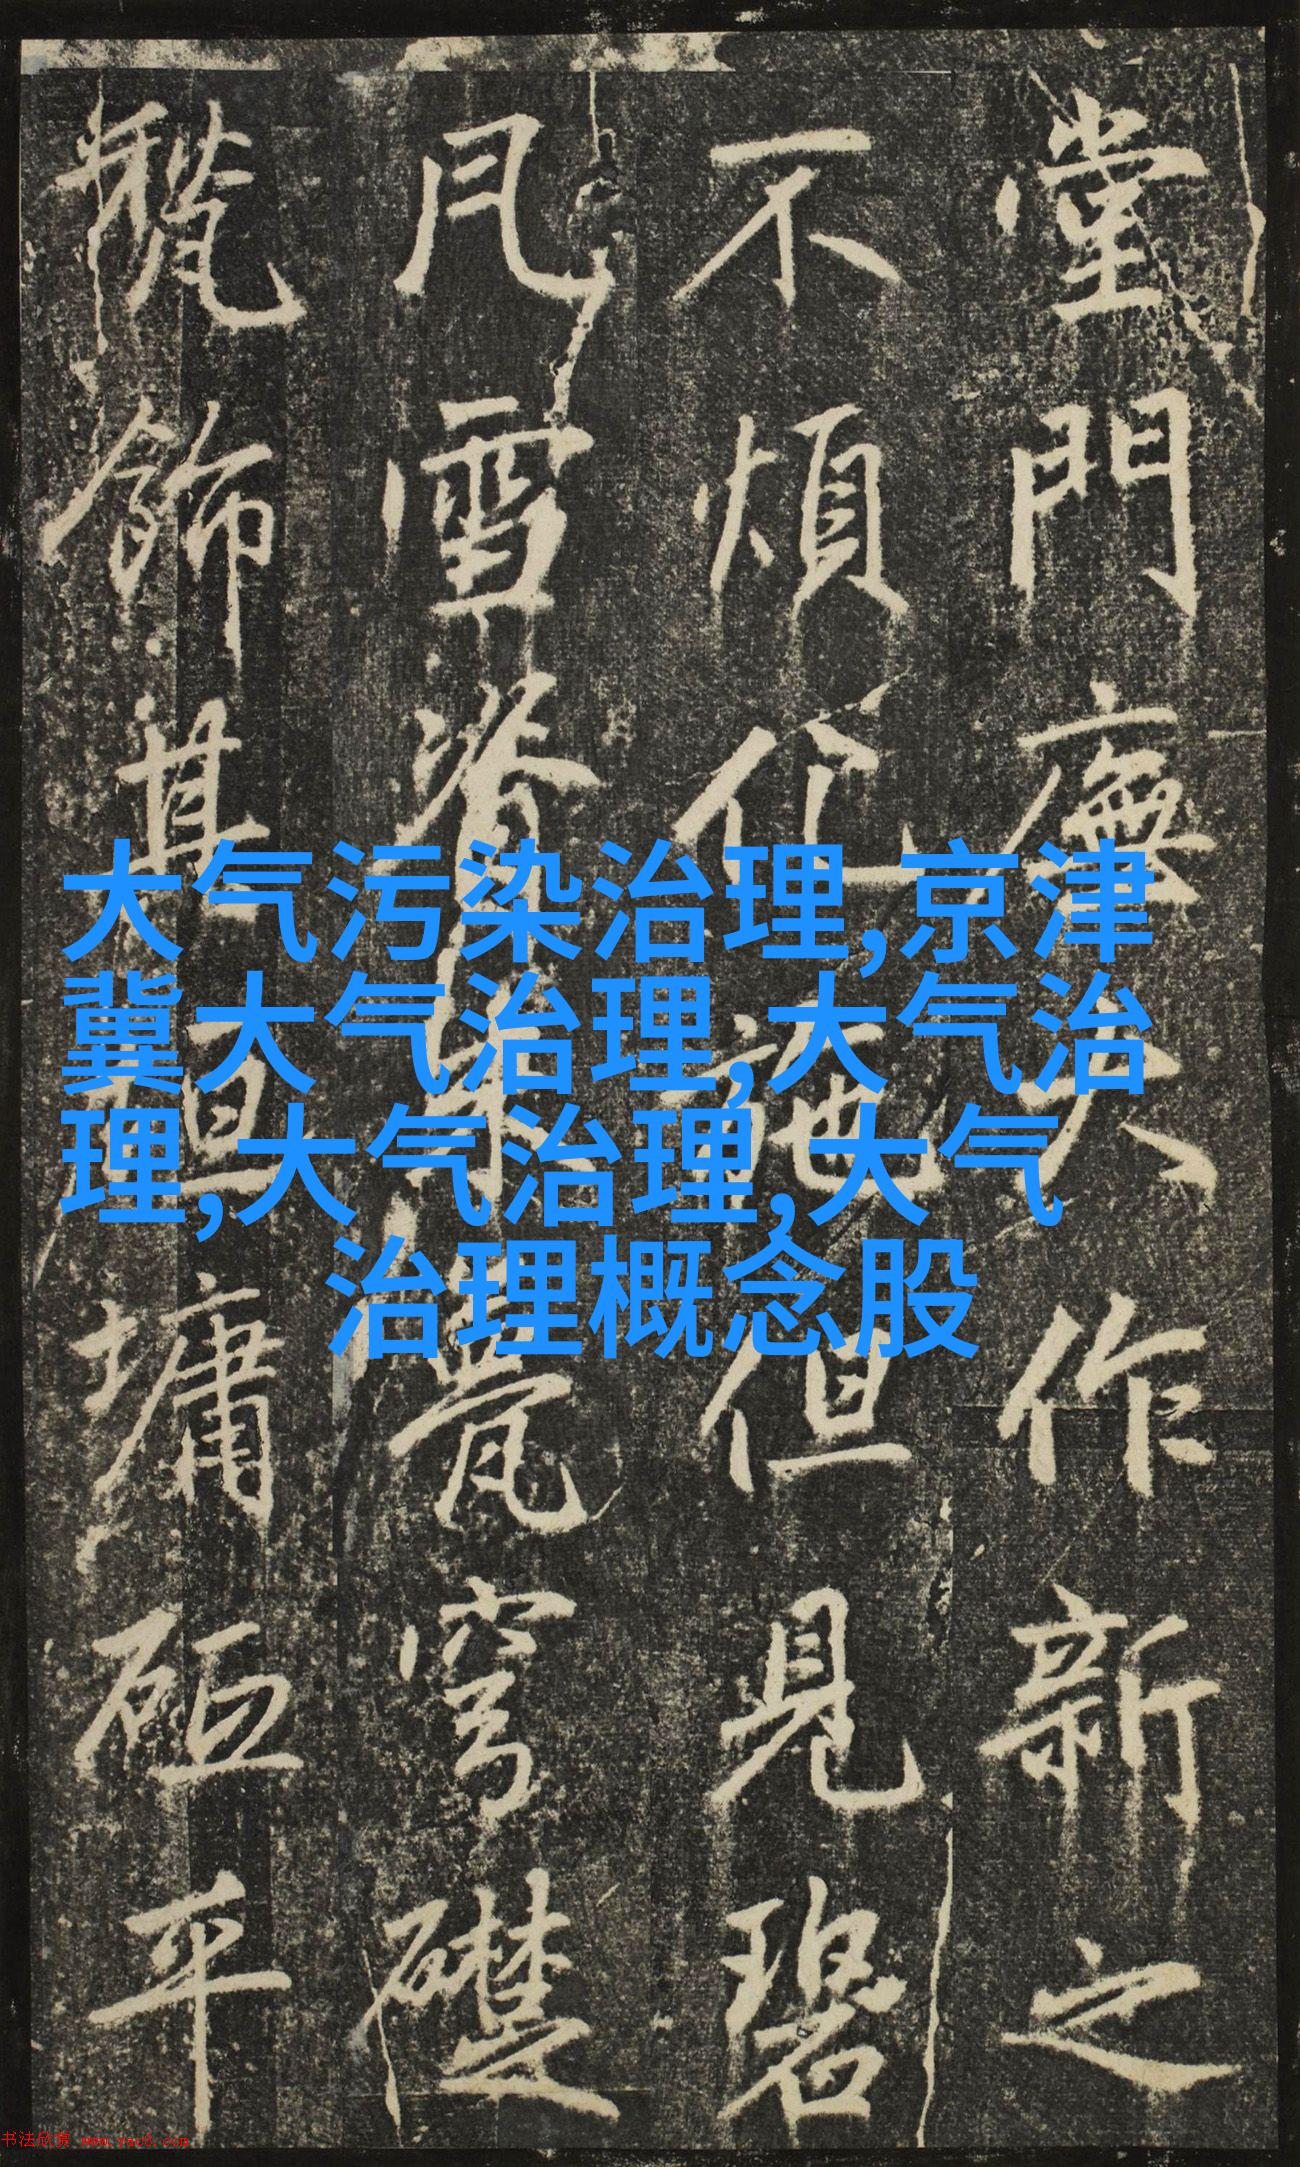 堂門廡大作新之
不煩化施但見碧
風雪脊
甍穹礎
飾其垣墉砥平
大气污染治理,京津
冀大气治理,大气治
理,大气治理,大气
治理概念股
书法欣赏 www.yac8.com